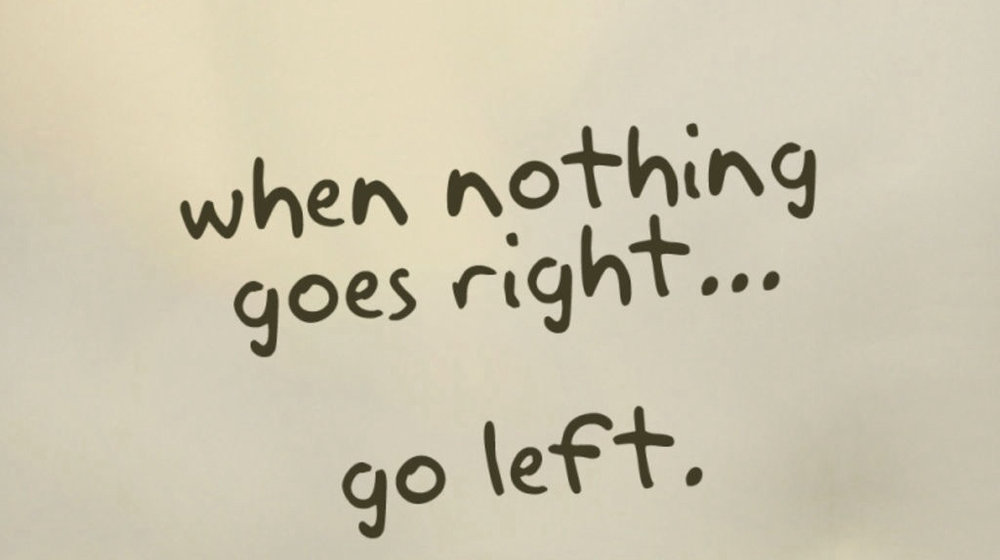 when nothing
goes right...
go left.